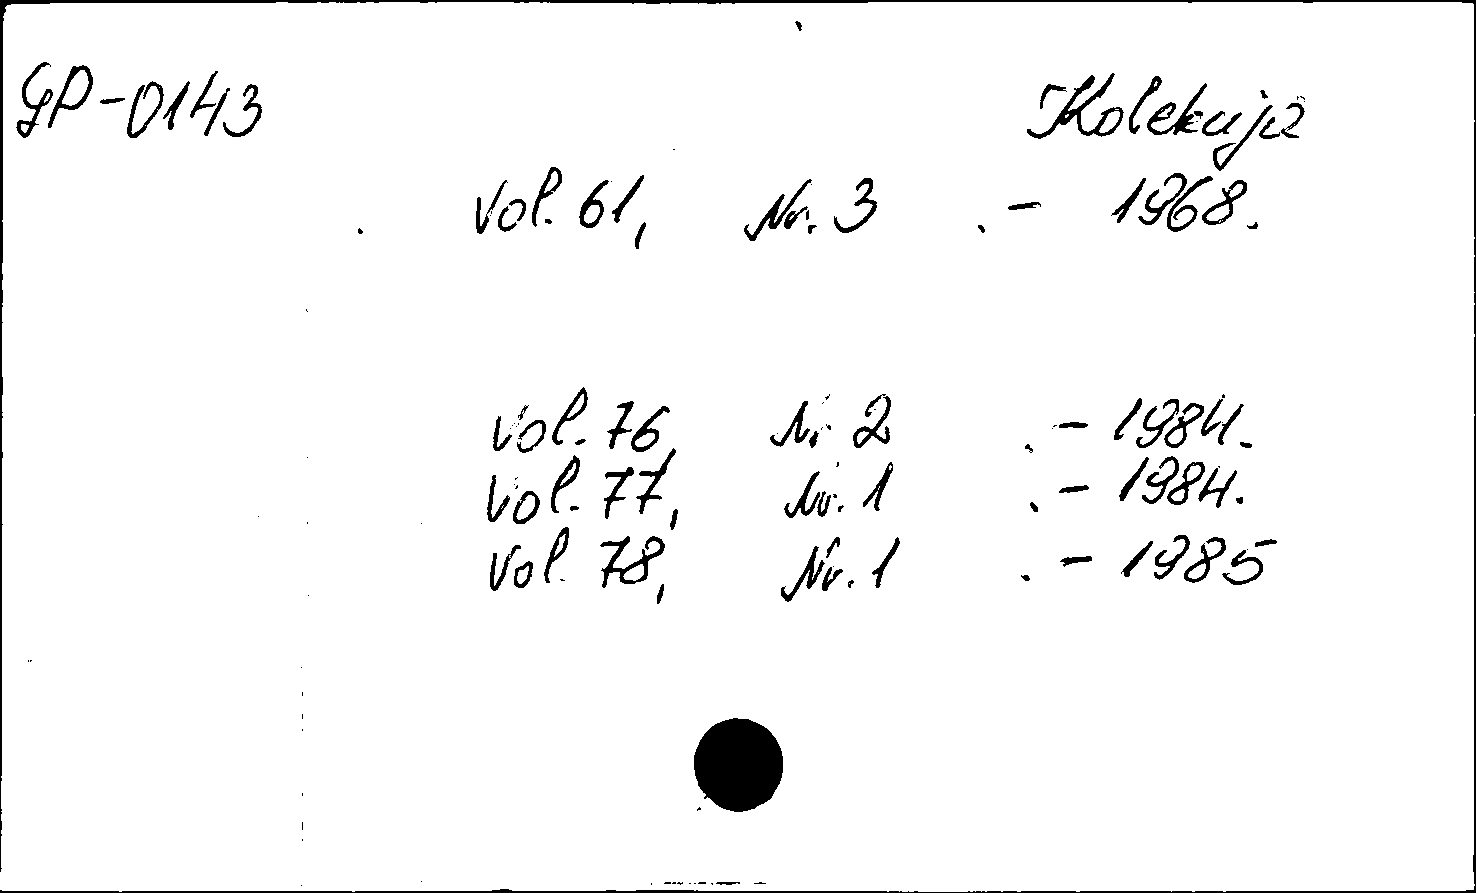 GP-0143 Kolekcija
Vol. 61, Nr. 3 . - 1968.
Vol. 76, Nr 2 . - 1984.
Vol. 77, Nr. 1 . - 1984.
Vol. 78, Nr. 1 . - 1985